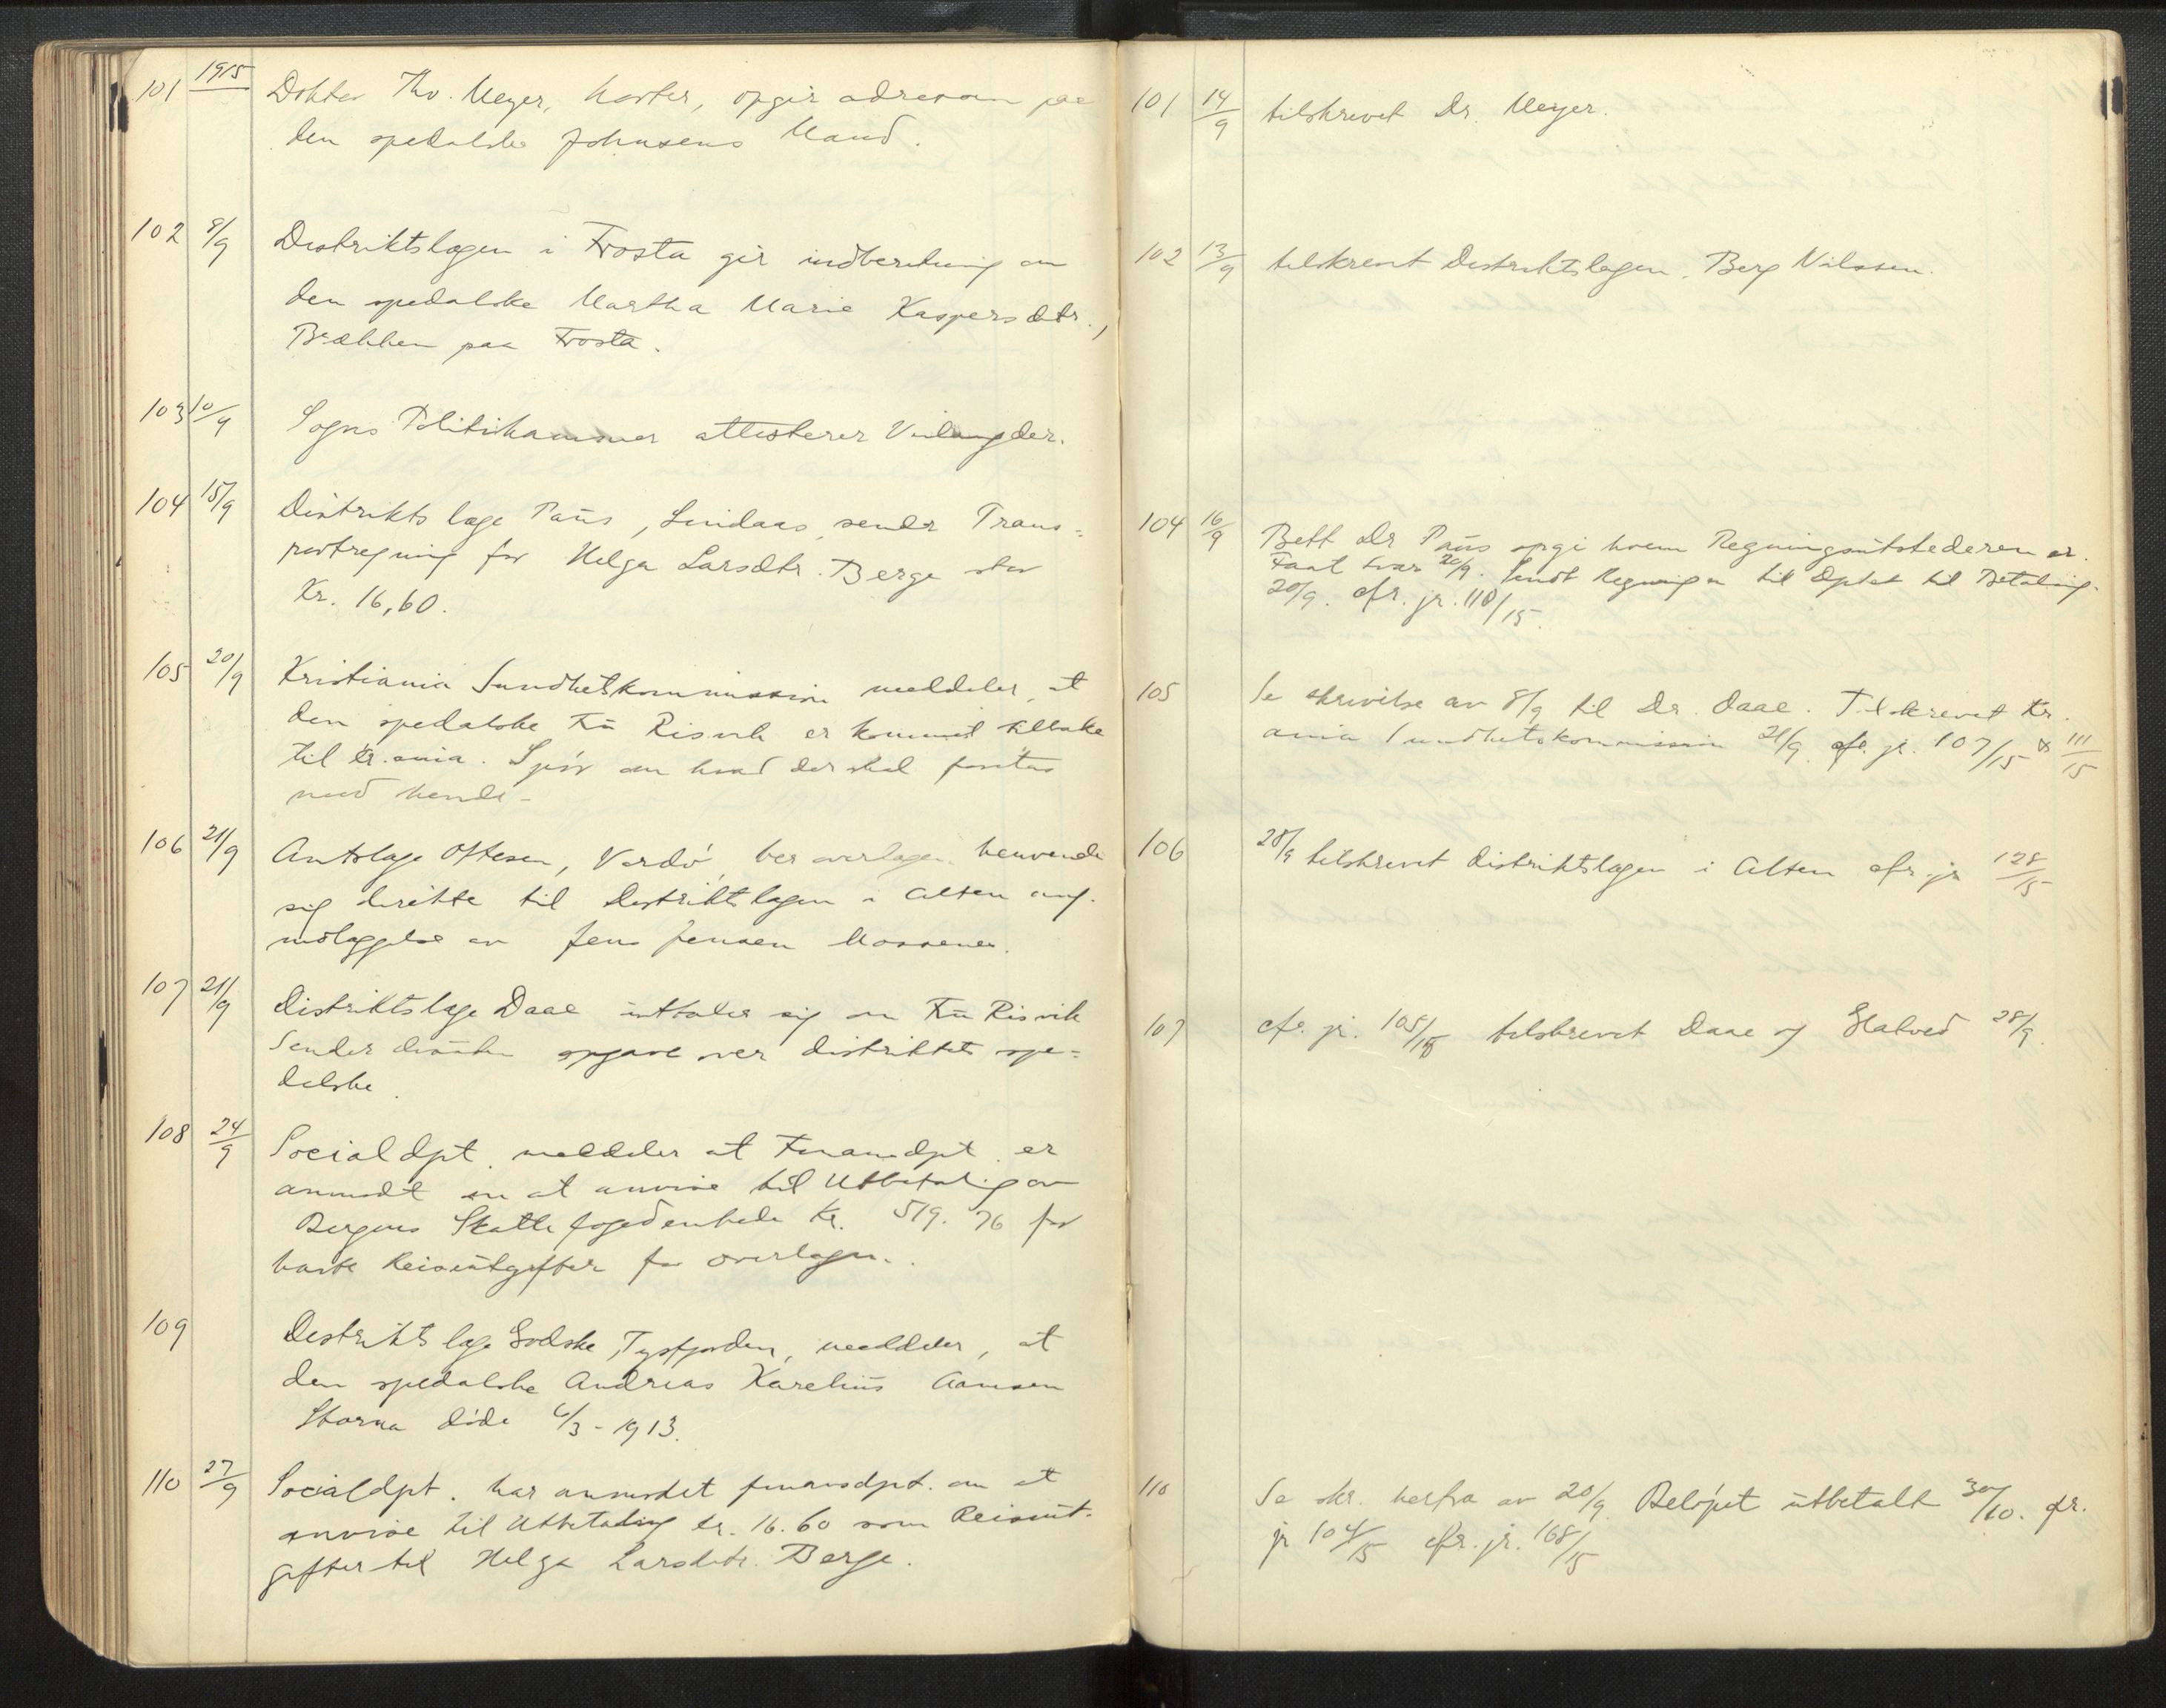 1915
101 Doktor Thv. Meyer, Horten, opgir adressen paa
den spedalske Johnsens Mand.
102 8/9 Distriktslægen i Frosta gir indberetning om
den spedalske Martha Marie Kaspersdtr.,
Brækken paa Frosta.
103 10/9 Sogns Politikammer attesterer
104 15/9 Distriktslæge Paus, Lindaas, sender Trans=
portregning for Helga Larsdtr. Berge stor
Kr. 16,60.
105 20/9 Kristiania Sundhetskommission meddeler, at
den spedalske Fru Risvik er kommet tilbake
til Kr.ania. Spør om hvad der skal foretas
med hende.
106 21/9 Amtslæge Oftesen, Vardø, ber overlægen henvende
sig direkte til Distriktslægen i Alten ang.
indlæggelse av Jens Jensen
107 21/9 Distriktslæge Daae uttaler sig om Fru Risvik
Sender opgave over distriktets spe=
dalske.
108 24/9 Socialdpt. meddeler at Finansdpt. er
anmodt om at anvise til Utbetaling av
Bergens Skattefogedembede Kr. 519.76 for
havte Reiseutgifter for overlægen.
109 Distriktslæge Godske, Tysfjorden, meddeler, at
den spedalske Andreas Karelius Aansen
Storaa døde 6/3 - 1913.
110 27/9 Socialdpt. har anmodet finansdpt. om at
anvise til Utbetaling kr. 16.60 som Reiseut-
gifter til Helga Larsdtr. Berge.
101 14/9 tilskrevet Dr. Meyer.
102 13/9 tilskrevet Distriktslægen, Berg Nilssen.
104 16/9 Bett Dr Paus opgi hvem Regningsutstederen er.
Faat svar 20/9. Sendt Regningen til Dptet til Betaling.
20/9. cfr. jr. 110/15.
105 Se skrivelse av 8/9 til Dr. Daae. Tilskrevet Kr.
ania Sundhetskommission 21/9 cfr. jr. 107/15 & 111/15
106 28/9 tilskrevet distriktslægen i Alten cfr. jr 128/15
107 cfr. jr. 105/15 tilskrevet Daae og 28/9.
110 Se skr. herfra av 20/9. Beløpet utbetalt 30/10. cfr.
jr 104/15 cfr. jr. 168/15